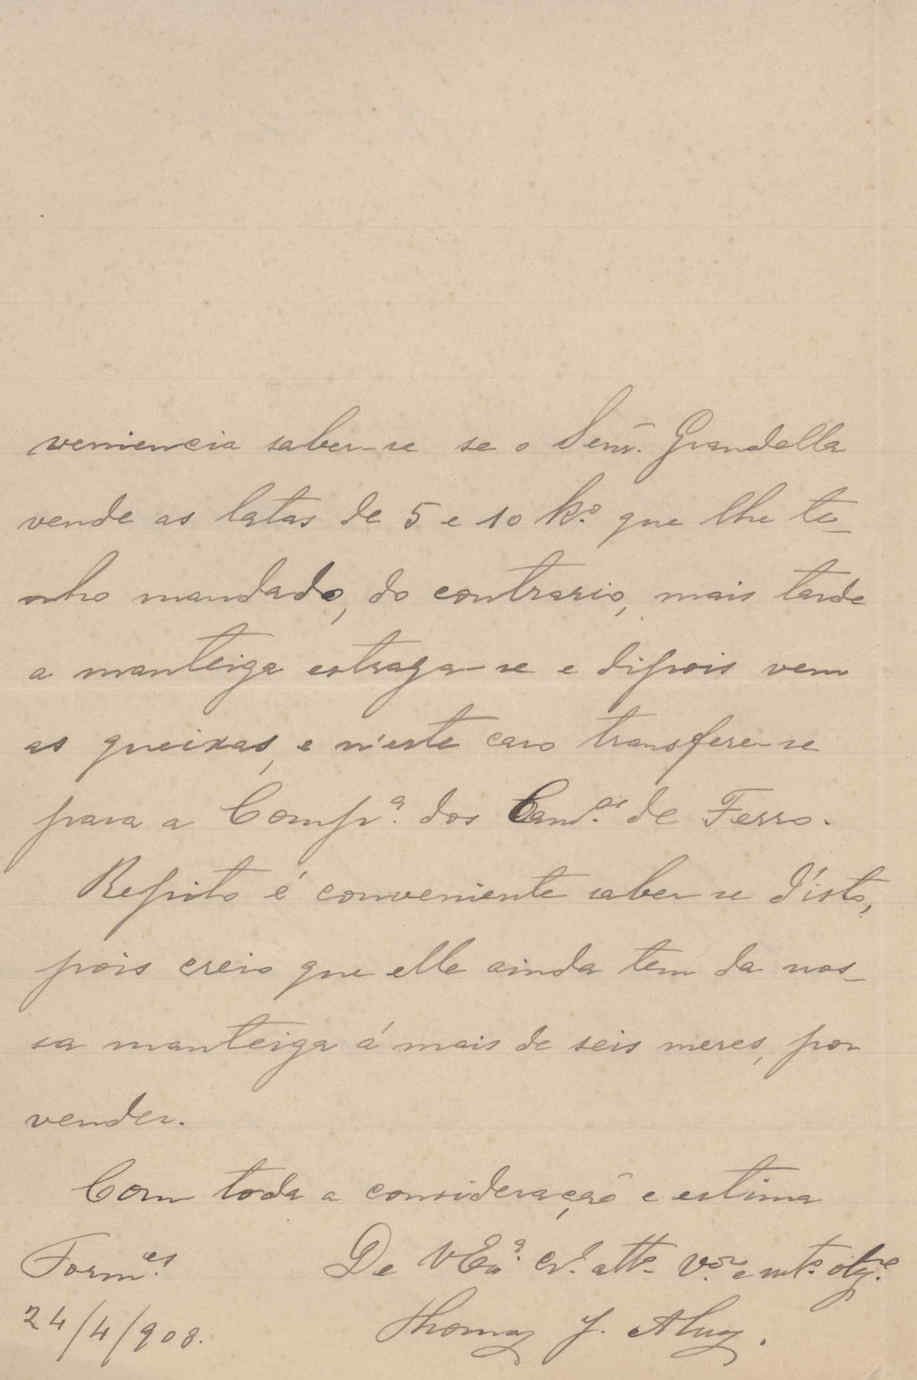 veniencia saber-se se o Senr. Grandella
vende as latas de 5 e 10 k.º que lhe te-
nho mandado, do contrario, mais tarde
a manteiga estraga-se e dipois vem
as queixas, e n'este caso transfere-se
para a Comp.ª dos Cam.os de Ferro.
Repito é conveniente saber se d'isto,
pois creio que elle ainda tem da nos-
sa manteiga á mais de seis meses, por
vender.
Com toda a consideração e estima
Form.es De V Ex.ª cr.º att.º V.or e mt.º obg.º
24/4/908. Thomaz J.